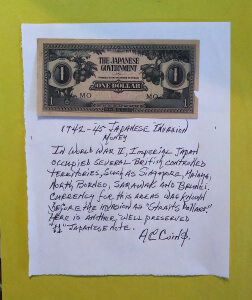 1
THE JAPANESE
GOVERNMENT
1
MO
MO
ONE DOLLAR
1942-45 JAPANESE INVASION
MONEY
IN WORLD WAR II, IMPERIAL JAPAN
OCCUPIED SEVERAL BRITISH CONTROLLED
TERRITORIES, SUCH AS SINGAPORE, MALAYA,
NORTH BORNEO, SARAWAK AND BRUNEI.
CURRENCY FOR THIS AREAS WAS KNOWN
BEFORE THE INVASION AS "STRAITS DOLLARS."
HERE IS ANOTHER, "WELL PRESERVED
"$1" JAPANESE NOTE.